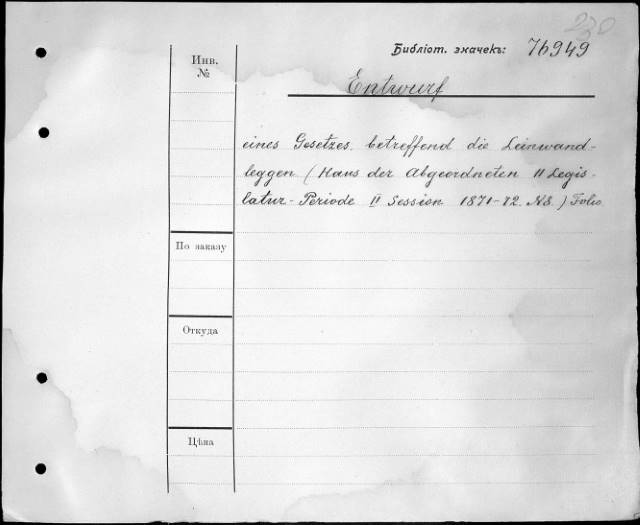 230
Библіот. значекъ: 76949
Инв.
№
Entwurf
eines Gesetzes. betreffend die Leinwand-
leggen (Haus der Abgeordneten 11 Legis-
latur- Periode II Session 1871-72. N8.) Folio
По заказу
Откуда
Цѣна